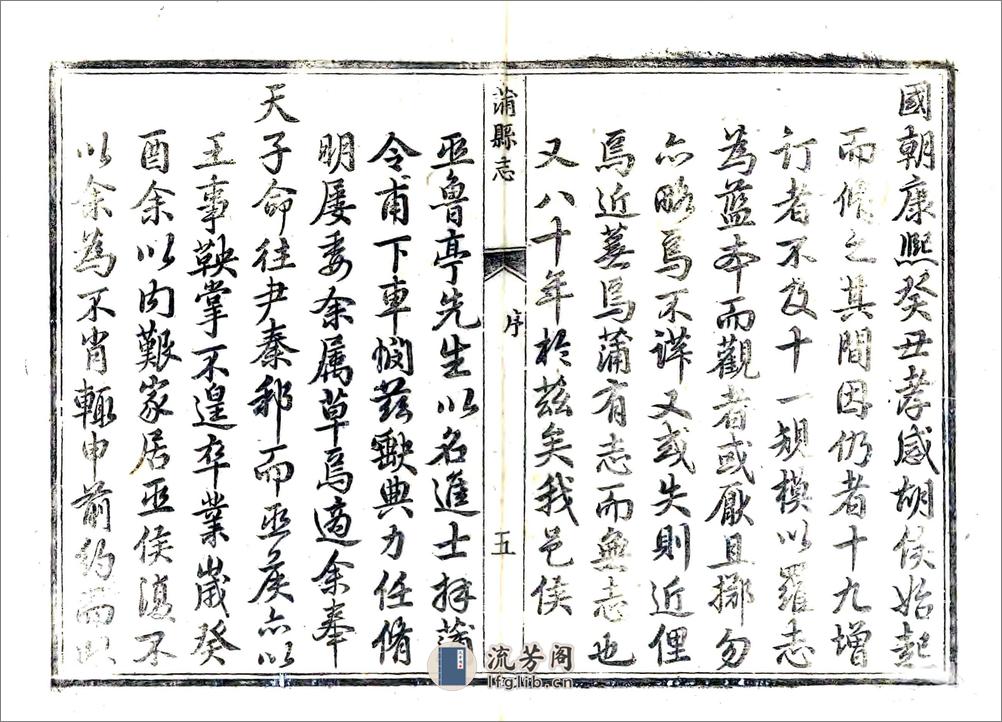 國朝康熙癸丑孝感胡侯始起
而脩之其間因仍者十九增
訂者不及十一規模以羅志
為藍本而觀者或厭且揶勿
亦略焉不詳又或失則近俚
焉近蕪焉蒲有志而無志也
又八十年於茲矣我邑侯
蒲縣志
序
五
巫魯亭先生以名進士拜蒲
令甫下車憫茲缺典力任脩
明屢委余属草焉適余奉
天子命往尹秦邠而巫侯亦以
王事鞅掌不遑卒業歲癸
酉余以内艱家居巫侯復不
以余為不肖輒申前約而以
流芳阁
lfglib.cn